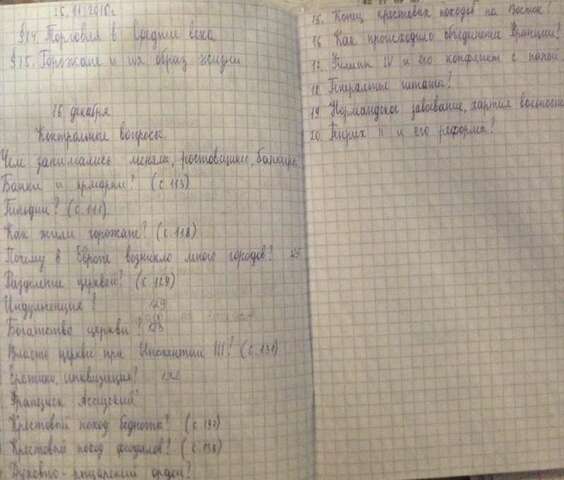 25.11.2016г
§14. Торговля в Средние века
§15. Горожане и их образ жизни
16 декабря
Контрольные вопросы
Чем занимались менялы, ростовщики, банкиры
Банки и ярмарки? (с 113)
Гильдии? (с 111)
Как жили горожане? (с 118)
Почему в Европе возникло много городов?
Разделение церквей? (с 129)
Индульгенция?
Богатство церкви?
Власть церкви при Инокентии III? (с 131)
Еретики, инквизиция?
Франциск Ассизский
Крестовый поход бедноты? (с 137)
Крестовый поход феодалов? (с 138)
Духовно-рыцарский орден?
15. Конец крестовых походов на Восток?
16 Как происходило объединение Франции?
17. Филипп IV и его конфликт с папой
18 Генеральные штаты?
19 Нормандское завоевание, хартия вольности
20. Генрих II и его реформа?